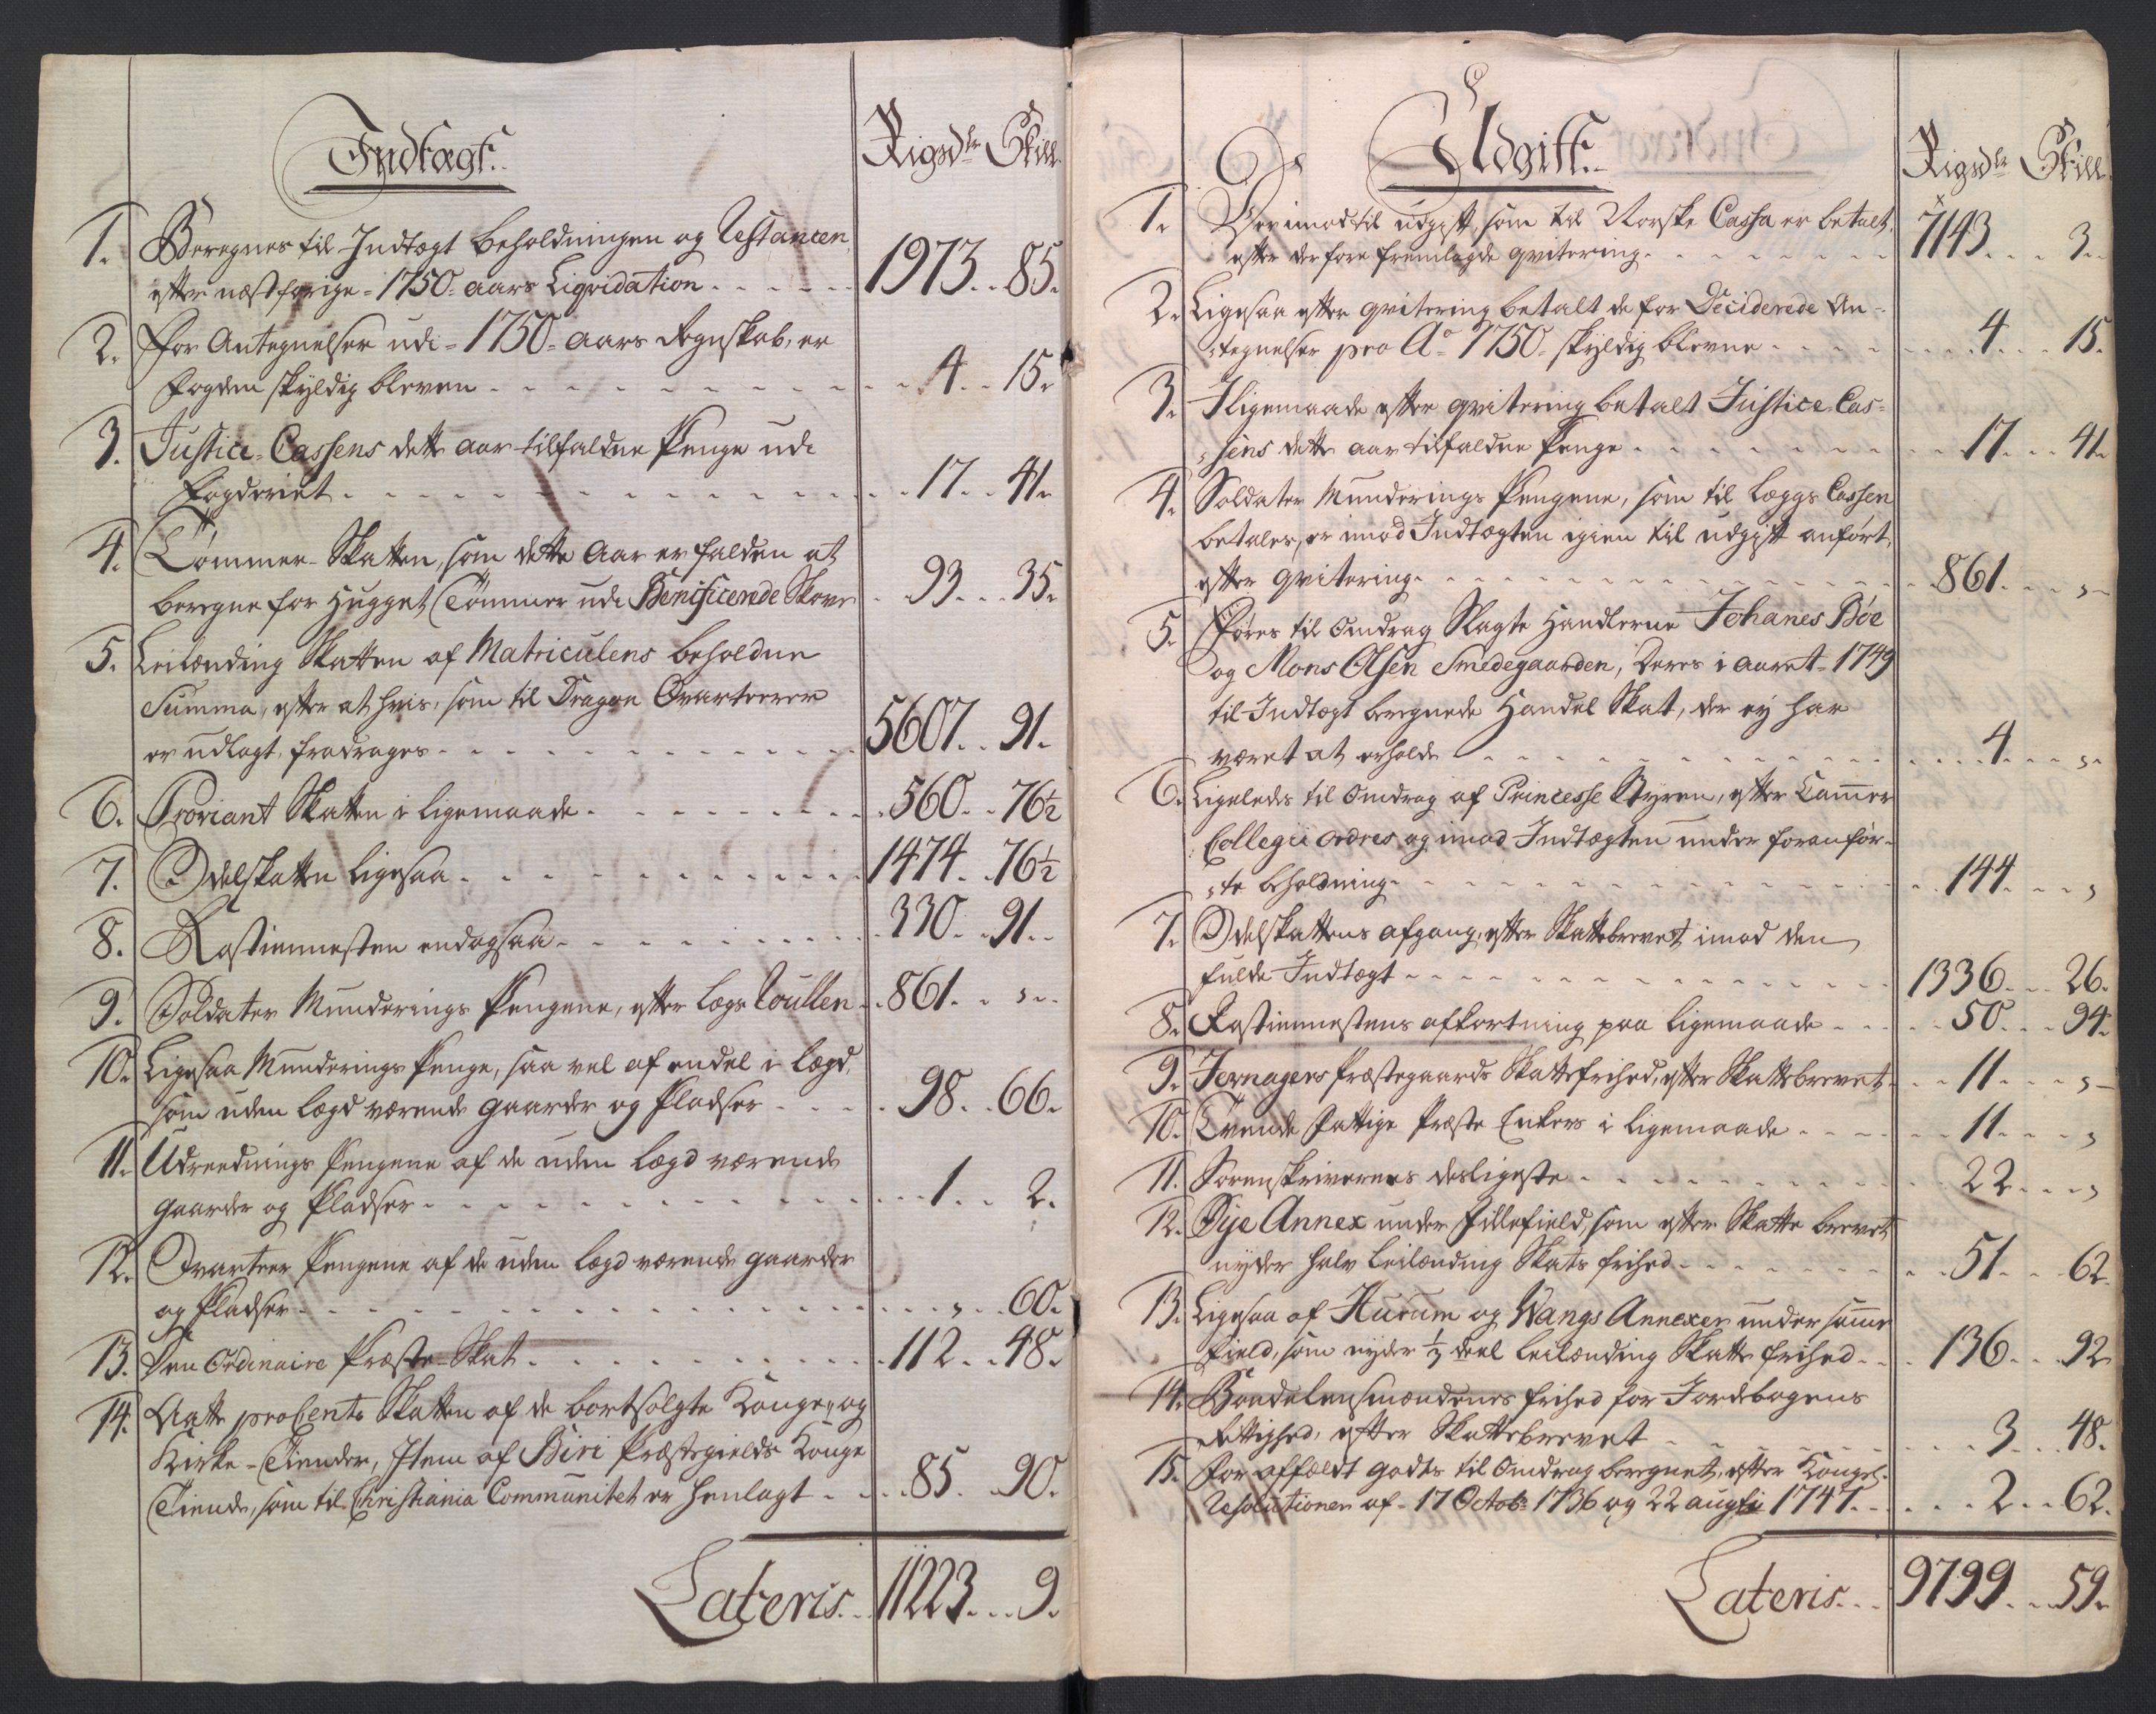 Indtægt.
Rigsdlr Skill.
1. Beregnes til Indtægt beholdningen og Restancen
efter næstforige 1750 aars Liqvidation - - - 1973. 85.
2. For Antegnelser udi 1750 aars Regnskab, er
Fogden skyldig bleven - - - 4. 15.
3. Justice-Cassens dette aar tilfaldne Penge udi
Fogderiet - - - 17. 41.
4. Tømmer-Skatten, som dette Aar er falden at
beregne for Hugget Tømmer udi Beneficerede Skove 93. 35.
5. Leilænding Skatten af Matriculens beholdne
Summa, efter at hvis, som til Dragon Qvarterer
er udlagt, fradrages - - - 5607. 91.
6. Proviant Skatten i ligemaade - - - 560. 76½
7. Odelskatten ligesaa - - - 1474. 76½
8. Rostiennesten endogsaa - - - 330. 91.
9. Soldater Munderings Pengene, efter Lægs Roullen 861. „
10. Ligesaa Munderings Penge, saa vel af endel i Lægd,
som uden Lægd værende gaarder og Pladser - - - 98. 66.
11. Udreednings Pengene af de uden Lægd værende
gaarder og Pladser - - - 1. 2.
12. Qvarteer Pengene af de uden Lægd værende gaarder
og Pladser - - - „ 60.
13. Den Ordinaire Præste-Skat - - - 112. 48.
14. Aatte proCento Skatten af de bortsolgte Konge- og
Kirke-Tiender, Item af Biri Præstegields Konge
Tiende, som til Christiania Communitet er henlagt - - 85. 90.
Lateris - - 11223. 9.
Udgift.
Rigsdlr Skill.
1. Derimod til udgift, som til Norske Cassa er betalt,
efter derfore fremlagde qvitering - - - 7143. 3.
2. Ligesaa efter qvitering betalt de for Deciderede An-
-tegnelser pro Ao 1750 skyldig blevne - - - 4. 15.
3. I ligemaade efter qvitering betalt Justice-Cas-
-sens dette aar tilfaldne Penge - - - 17. 41.
4. Soldater Munderings Pengene, som til Lægs Cassen
betales, er imod Indtægten igien til udgift anført,
efter qvitering - - - 861. „
5. Føres til Omdrag Slagte Handlerne Johanes Bøe
og Mons Olsen Smedegaarden, deres i aaret 1749
til Indtægt beregnede Handel Skat, der ey har
været at erholde - - - 4. „
6. Ligeledes til Omdrag af Princesse Styren, efter Cammer
Collegii ordres og imod Indtægten under foranfør-
-te beholdning - - - 144. „
7. Odelskattens afgang, efter Skattebrevet imod den
fulde Indtægt - - - 1336. 26.
8. Rostiennestens afkortning paa ligemaade - - 50. 94.
9. Jevnagers Præstegaards Skattefrihed, efter Skattebrevet - 11. „
10. Tvende fattige Præste Enkers i ligemaade - - - 11. „
11. Sorenskrivernes desligeste - - - 22. „
12. Øye Annex under Fillefield, som efter Skatte brevet
nyder halv Leilænding Skats frihed - - - 51. 62.
13. Ligesaa af Hurum og Wangs Annexer under samme
Field, som nyder ⅓ deel Leilænding Skatte frihed - - 136. 92.
14. Bondelensmændenes frihed for Jordebogens
Rettighed, efter Skattebrevet - - - 3. 48.
15. For affældt godts til Omdrag beregnet, efter Kongel.
Resolutioner af 17 Octobr 1736 og 22 augusti 1747 - - 2. 62.
Lateris - - 9799. 59.